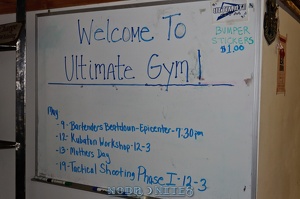 WELCOME TO
ULTIMATE GYM!
BUMPER
STICKERS
$1.00
May
-9-Bartenders Beatdown-Epicenter-7:30pm
-12-Kubaton Workshop-12-3
-13-Mothers Day
-19-Tactical Shooting Phase I-12-3